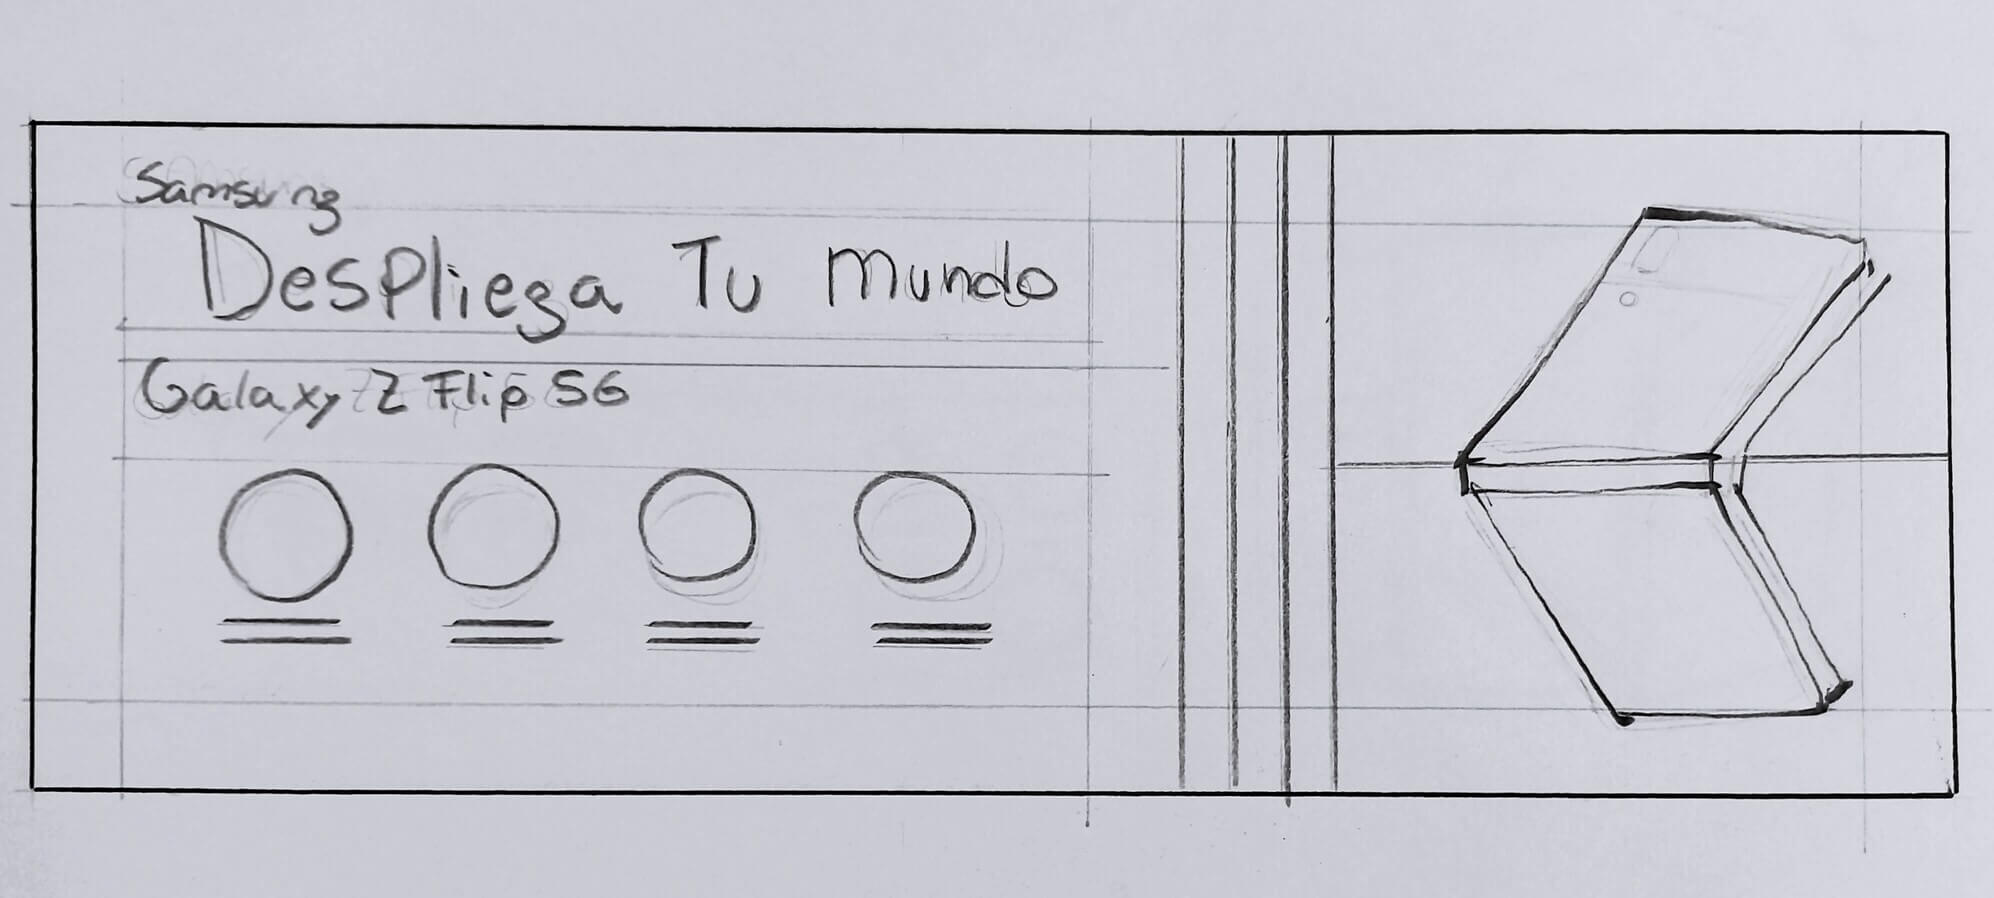 Samsung
Despliega Tu mundo
Galaxy Z Flip S6